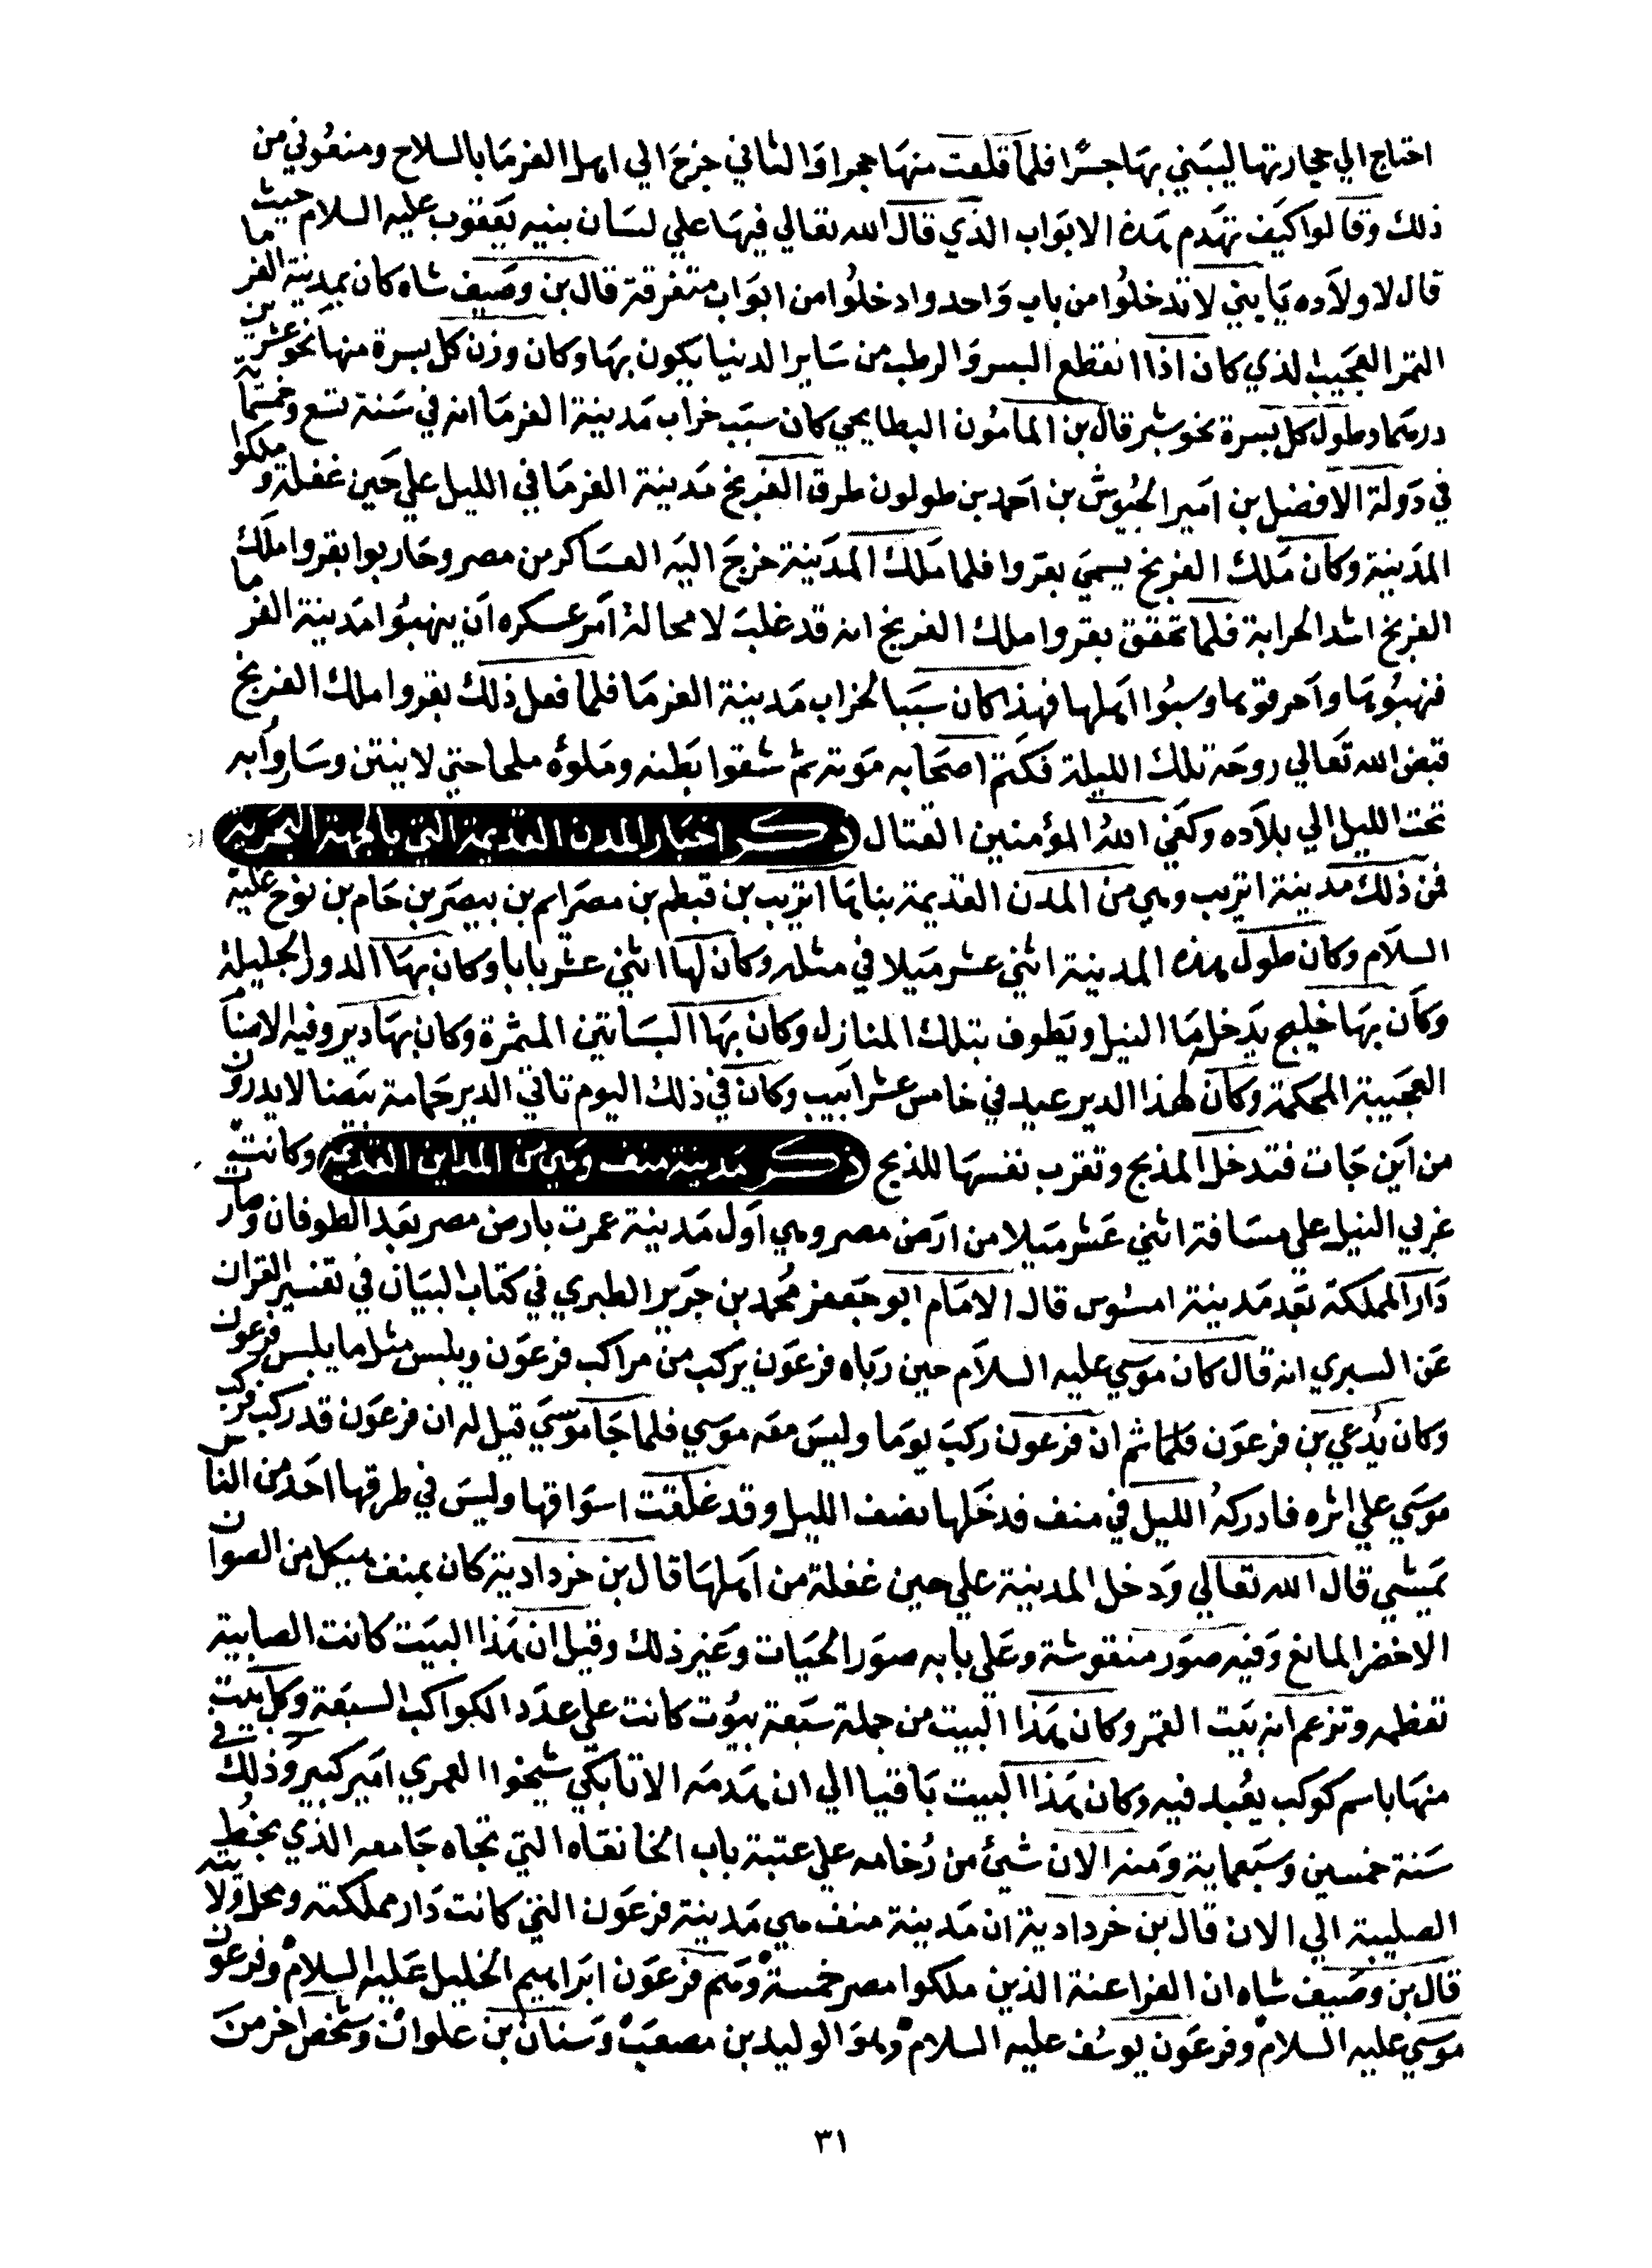 احتاج الي حجارتها ليبني بها جسرا فلما قلعت منها حجرا والثاني خرج الي اهل الفرما بالسلاح ومنعوني من
ذلك وقالوا كيف تهدم هذه الابواب الذي قال الله تعالي فيها علي لسان بنيه يعقوب عليه السلام حيث
قال لاولاده يا بني لا تدخلوا من باب واحد وادخلوا من ابواب متفرقة قال بن وصيف شاه كان بمدينة الفرما
التمر العجيب الذي كان اذا انقطع البسر والرطب من ساير الدنيا يكون بها وكان وزن كل بسرة منها نحو عشرين
درهما وطول كل بسرة نحو شبر قال بن المامون البطايحي كان سبب خراب مدينة الفرما انه في سنة تسع وخمسماية
في دولة الافضل بن امير الجيوش بن احمد بن طولون طرق الفرنج مدينة الفرما في الليل علي حين غفلة وملكوا
المدينة وكان ملك الفرنج يسمي بقروا فلما ملك المدينة خرج اليه العساكر من مصر وحاربوا بقروا ملك
الفرنج اشد الحرابة فلما تحقق بقروا ملك الفرنج انه قد غلب لا محالة امر عسكره ان ينهبوا مدينة الفرما
فنهبوها واحرقوها وسبوا اهلها فهذا كان سببا لخراب مدينة الفرما فلما فعل ذلك بقروا ملك الفرنج
قبض الله تعالي روحه تلك الليلة فكتم اصحابه موته ثم شقوا بطنه وملوه ملحا حتي لا ينتن وساروا به
تحت الليل الي بلاده وكفي الله المؤمنين القتال ذكر اخبار المدن القديمة التي بالجهة البحرية
فمن ذلك مدينة اتريب وهي من المدن القديمة بناها اتريب بن قبطم بن مصرايم بن بيصر بن حام بن نوح عليه
السلام وكان طول هذه المدينة اثني عشر ميلا في مثله وكان لها اثني عشر بابا وكان بها الدور الجليلة
وكان بها خليج يدخله ما النيل ويطوف بتلك المنازل وكان بها البساتين المثمرة وكان بها دير وفيه الاصنام
العجيبة المحكمة وكان لهذا الدير عيد في خامس عشر ابيب وكان في ذلك اليوم تاتي الدير حمامة بيضا لا يدرون
من اين جات فتدخل المذبح وتقرب نفسها للذبح ذكر مدينة منف وهي من المداين القديمة وكانت
غربي النيل علي مسافة اثني عشر ميلا من ارض مصر وهي اول مدينة عمرت بارض مصر بعد الطوفان وصارت
دار المملكة بعد مدينة امسوس قال الامام ابو جعفر محمد بن جرير الطبري في كتاب البيان في تفسير القران
عن السبري انه قال كان موسي عليه السلام حين رباه فرعون يركب من مراكب فرعون ويلبس مثل ما يلبس فرعون
وكان يدعي بن فرعون فلما ثم ان فرعون ركب يوما وليس معه موسي فلما جا موسي قيل له ان فرعون قد ركب فركب
موسي علي اثره فادركه الليل في منف فدخلها نصف الليل وقد غلقت اسواقها وليس في طرقها احد من الناس
يمشي قال الله تعالي ودخل المدينة علي حين غفلة من اهلها قال بن خردادية كان بمنف هيكل من الصوان
الاخضر المانع وفيه صور منقوشة وعلي بابه صور الحيات وغير ذلك وقيل ان هذا البيت كانت الصابية
تعظمه وتزعم انه بيت القمر وكان هذا البيت من جملة سبعة بيوت كانت علي عدد الكواكب السبعة وكل بيت
منها باسم كوكب يعبد فيه وكان هذا البيت باقيا الي ان هدمه الاتابكي شيخوا العمري امير كبير وذلك في
سنة خمسين وسبعماية ومنه الان شيئ من رخامه علي عتبة باب الخانقاه التي تجاه جامعه الذي بخط
الصليبة الي الان قال بن خردادية ان مدينة منف هي مدينة فرعون التي كانت دار مملكته ومحل ولايته
قال بن وصيف شاه ان الفراعنة الذين ملكوا مصر خمسة وهم فرعون ابراهيم الخليل عليه السلام وفرعون
موسي عليه السلام وفرعون يوسف عليه السلام وهو الوليد بن مصعب وسنان بن علوان وشخص اخر من
٣١